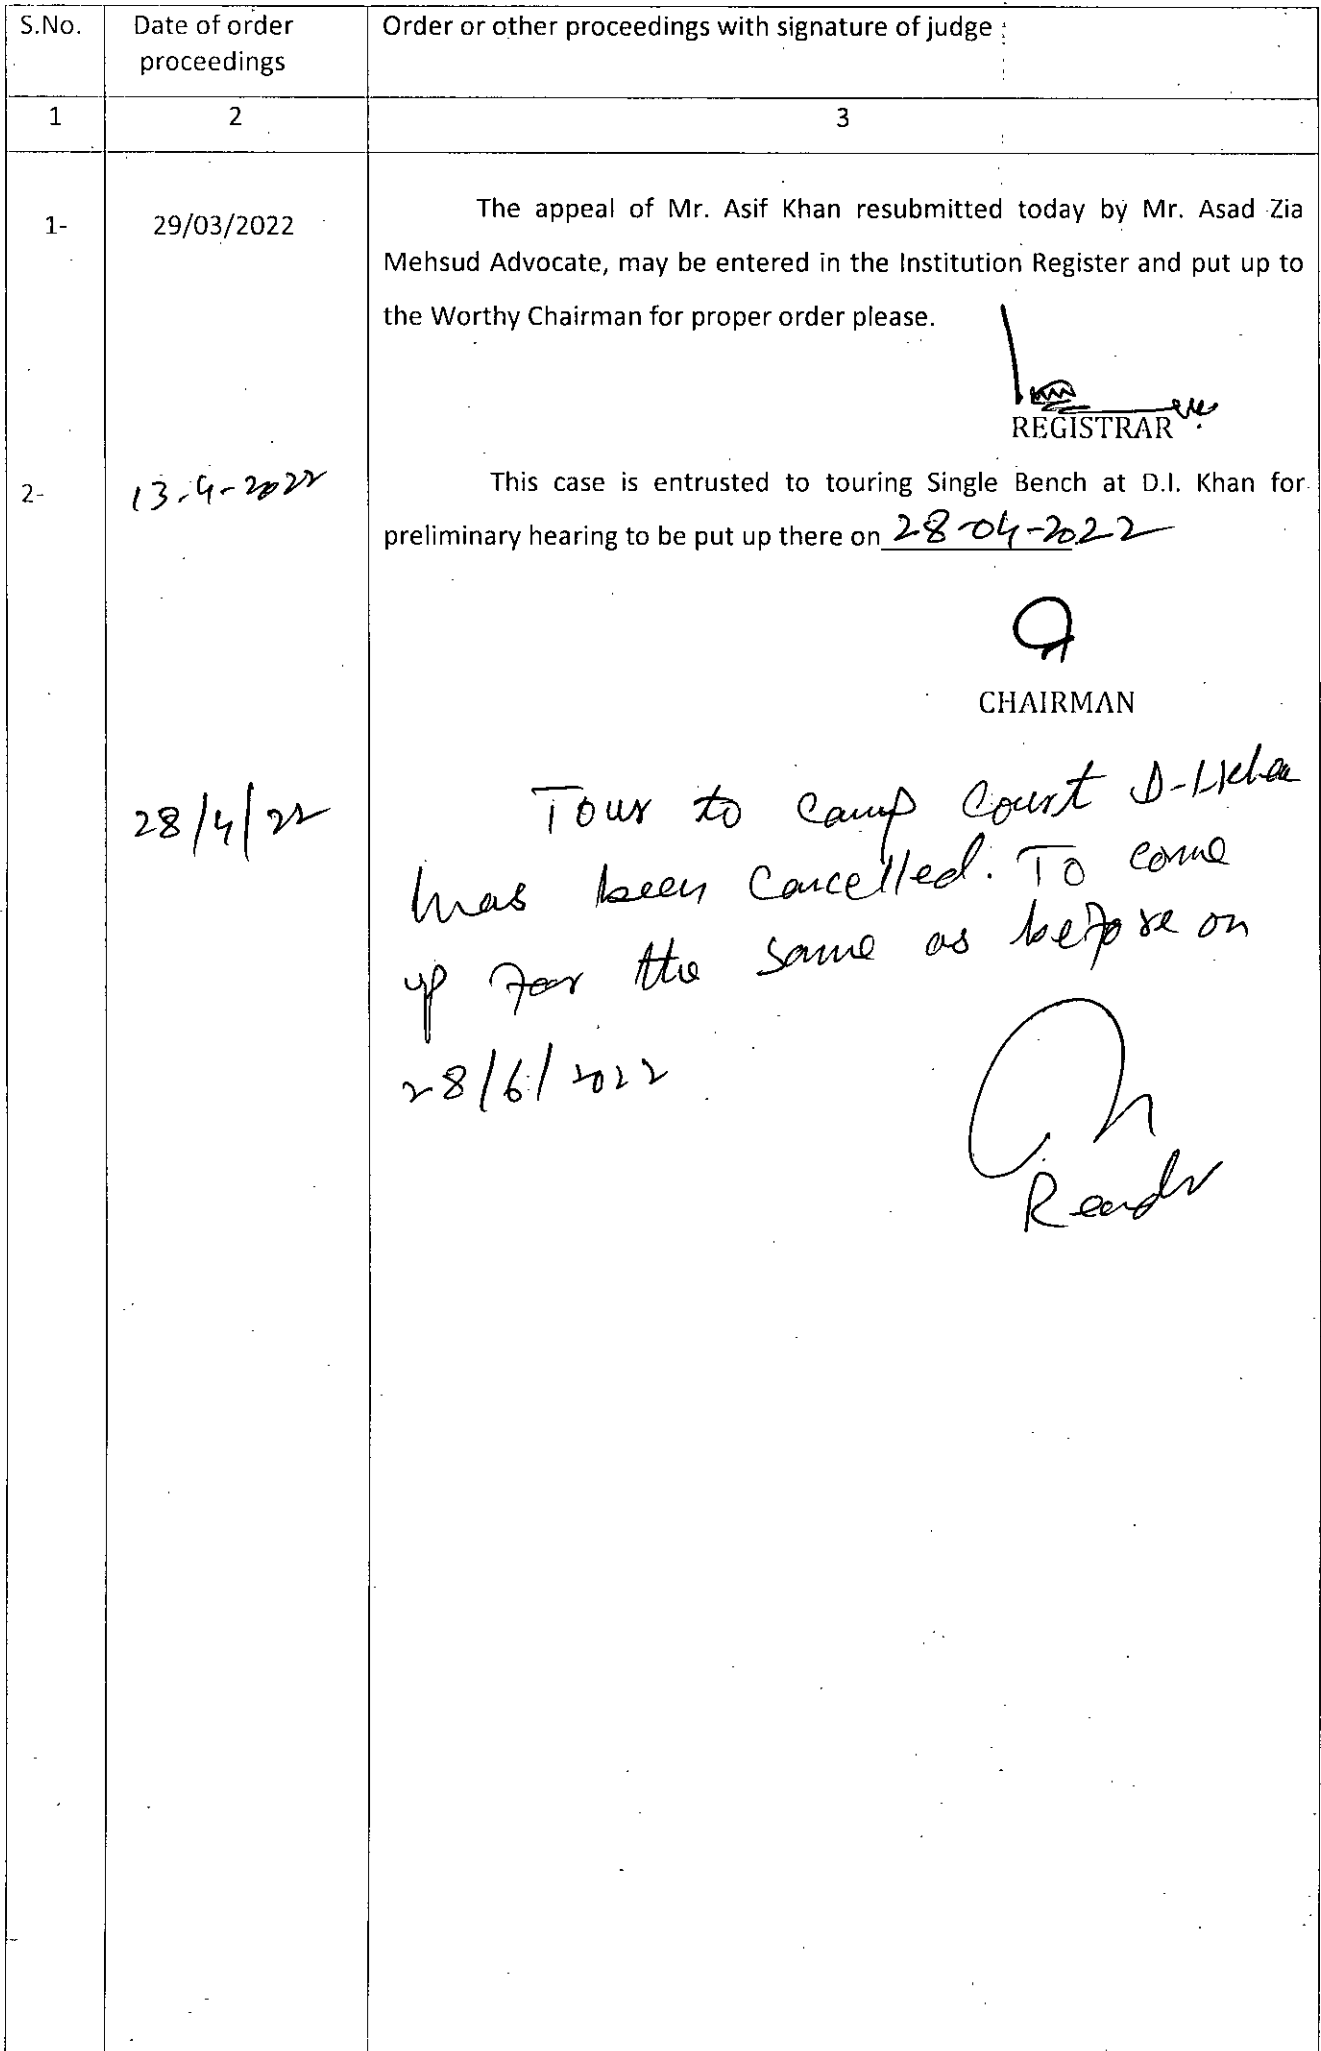 S.No.
Date of order
proceedings
Order or other proceedings with signature of judge
1
2
3
1-
29/03/2022
The appeal of Mr. Asif Khan resubmitted today by Mr. Asad Zia
Mehsud Advocate, may be entered in the Institution Register and put up to
the Worthy Chairman for proper order please.
REGISTRAR
2-
13-4-2022
This case is entrusted to touring Single Bench at D.I. Khan for
preliminary hearing to be put up there on 28-04-2022
CHAIRMAN
28/4/22
Tour to Camp Court D-I Khan
has been Cancelled. To come
up for the same as before on
28/6/2022
Reader